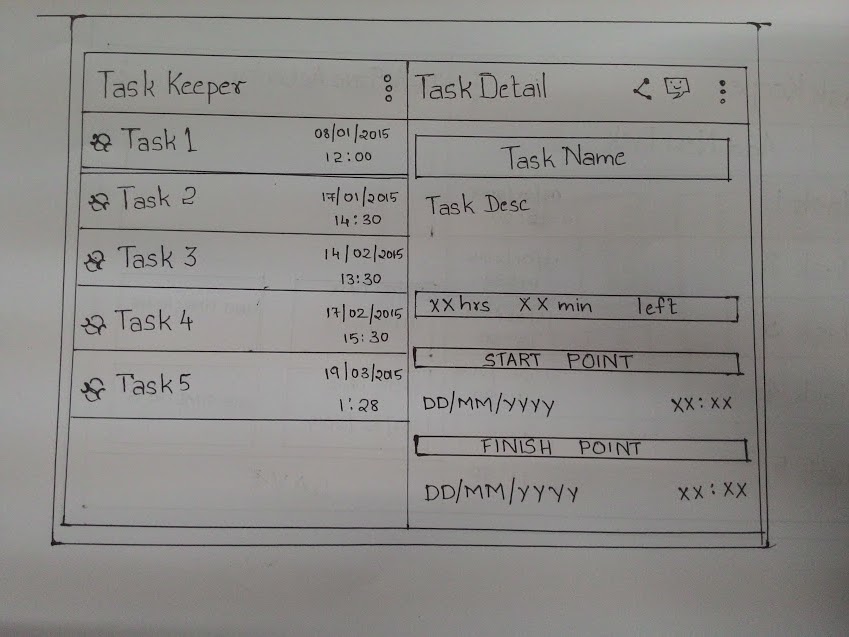 Task Keeper
Task 1 08/01/2015
12:00
Task 2 17/01/2015
14:30
Task 3 14/02/2015
13:30
Task 4 17/02/2015
15:30
Task 5 19/03/2015
1:28
Task Detail
Task Name
Task Desc
XX hrs XX min left
START POINT
DD/MM/YYYY XX:XX
FINISH POINT
DD/MM/YYYY XX:XX